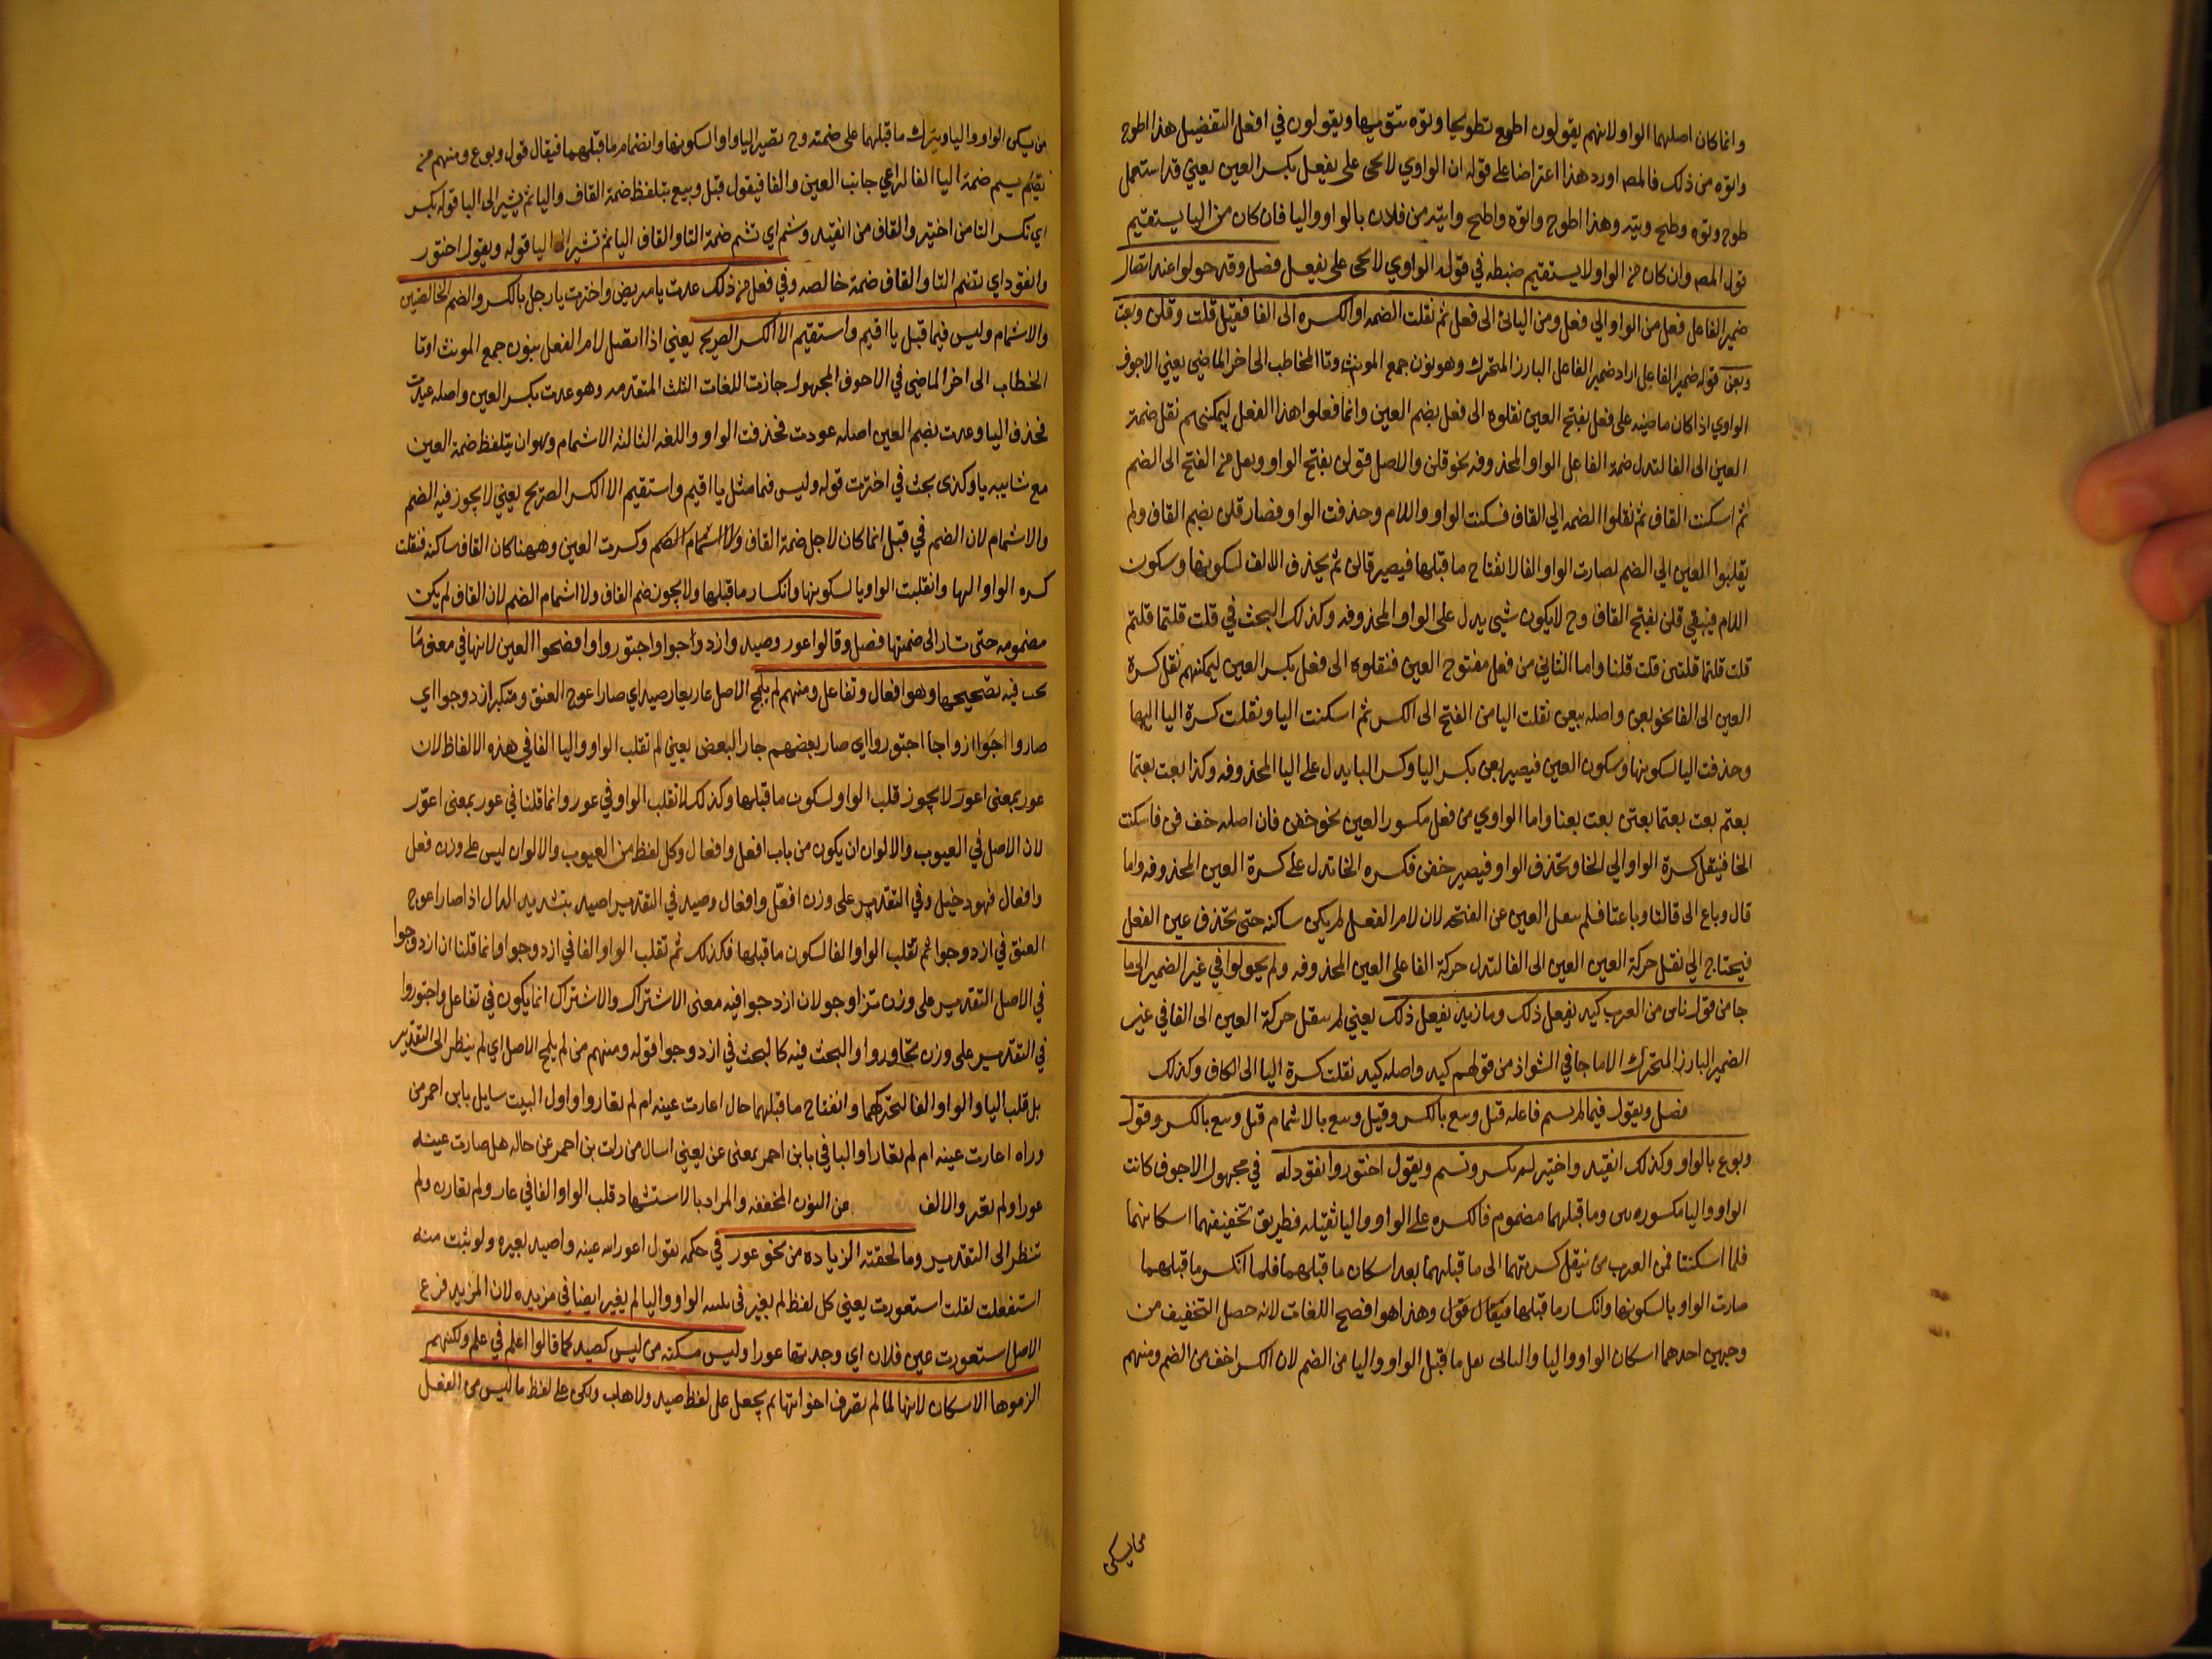 وانما كان اصلهما الواو لانهم يقولون اطوح تطويحا وتوه تتويها ويقولون في افعل التفضيل هذا اطوح
واتوه من ذلك فالمصـ اورد هذا اعتراضا على قوله ان الواوي لا يجئ على يفعل بكسر العين يعني قد استعمل
طوح وتوه وطيح وتيه وهذا اطوح واتوه واطيح واتيه من فلان بالواو واليا فان كان من اليا يستقيم
قول المصـ وان كان من الواو لا يستقيم ضبطه في قوله الواوي لا يجئ على يفعل فصل وقد حولوا عند اتصال
ضمير الفاعل فعل من الواو الي فعل ومن اليائ الى فعل ثم نقلت الضمه او الكسره الى الفا فقيل قلت وقلن وبعت
وبعن قوله ضمير الفاعل اراد ضمير الفاعل البارز المتحرك وهو نون جمع المونث وتا المخاطب الى اخر الماضي يعني الاجوف
الواوي اذا كان ماضيه على فعل بفتح العين نقلوه الى فعل بضم العين وانما فعلوا هذا الفعل ليمكنهم نقل ضمة
العين الى الفا لتدل ضمة الفا على الواو المحذوفه نحو قلن والاصل قولن بفتح الواو ونقل من الفتح الى الضم
ثم اسكنت القاف ثم نقلوا الضمه الي القاف فسكنت الواو واللام وحذفت الواو فصار قلن بضم القاف ولم
يقلبوا العين الي الضم لصارت الواو الفا لانفتاح ما قبلها فيصير قالن ثم يحذف الالف لسكونها وسكون
اللام فيبقي قلن بفتح القاف وح لا يكون شي يدل على الواو المحذوفه وكذلك البحث في قلت قلتما قلتم
قلت قلتما قلتن قلت قلنا واما الثاني من فعل مفتوح العين فنقلوه الى فعل بكسر العين ليمكنهم نقل كسرة
العين الى الفا نحو بعن واصله بيعن نقلت اليا من الفتح الى الكسر ثم اسكنت اليا ونقلت كسرة اليا اليها
وحذفت اليا لسكونها وسكون العين فيصير بعن بكسر اليا وكسر البا يدل على اليا المحذوفه وكذا بعت بعتما
بعتم بعت بعتما بعتن بعت بعنا واما الواوي من فعل مكسور العين نحو خفن فان اصله خف فن فاسكنت
الخا فينقل كسرة الواو الي الخا وتحذف الواو فيصير خفن فكسره الخا تدل على كسرة العين المحذوفه واما
قال وباع الى قالتا وباعتا فلم ينقل العين عن الفتحه لان لام الفعل لم يكن ساكنه حتى تحذف عين الفعل
فيحتاج الي نقل حركة العين العين الى الفا لتدل حركة الفا على العين المحذوفه ولم يحولوا في غير الضمير الى ما
جا من قول ناس من العرب كيد يفعل ذلك وما زيد يفعل ذلك يعني لم ينقل حركة العين الى الفا في غير
الضمير البارز المتحرك الا ما جا في الشواذ من قولهم كيد واصله كيد نقلت كسرة اليا الى الكاف وكذلك
فصل ويقول فيما لم يسم فاعله قيل وبيع بالكسر وقيل وبيع بالاشمام قيل وبيع بالكسر وقول
وبوع بالواو وكذلك انقيد واختير له يكسر وتسم ويقول اختور وانقود له في مجهول الاجوف كانت
الواو واليا مكسوره وما قبلهما مضموم فالكسره على الواو واليا ثقيله فطريق تخفيفهما اسكانهما
فلما اسكنتا فمن العرب من ينقل كسرتهما الى ما قبلهما بعد اسكان ما قبلهما فلما انكسر ما قبلهما
صارت الواو يا لسكونها وانكسار ما قبلها فيقال قول وهذا هو افصح اللغات لانه حصل التخفيف من
وجهين احدهما اسكان الواو واليا والثاني نقل ما قبل الواو واليا من الضم لان الكسر اخف من الضم ومنهم
من يسكن
من يسكن الواو واليا ويترك ما قبلهما على ضمته وح تصير اليا واوا لسكونها وانضمام ما قبلهما فيقال قول وبوع ومنهم من
يشم ضمة اليا الفا جانب العين والفا فيقول قيل وبيع بتلفظ ضمة القاف واليا ثم يشير الى اليا قوله بكسر
اي تكسر التا من اختير والقاف من انقيد وتشم اي تشم ضمة التا والقاف اليا ثم تشير الى اليا قوله ويقول اختور
وانقود اي تضم التا والقاف ضمة خالصه وفي فعل من ذلك عدت يا مريض واخترت يا رجل بالكسر والضم الخالصين
والاشمام وليس فيما قبل يا اقيم واستقيم الا الكسر الصريح يعني اذا اتصل لام الفعل بنون جمع المونث او تا
الخطاب الى اخر الماضي في الاجوف المجهول جازت اللغات الثلث المتقدمه وهو عدت بكسر العين واصله عيدت
فحذف اليا وعدت بضم العين اصله عودت فحذفت الواو واللغه الثالثه الاشمام وهو ان يتلفظ ضمة العين
مع شايبه يا وكذى بحث في اخترت قوله وليس فيما مثل يا اقيم واستقيم الا الكسر الصريح يعني لا يجوز فيه الضم
والاشمام لان الضم في قيل انما كان لاجل ضمة القاف ولا اشمام الضم وكسرت العين وههنا كان القاف ساكنه فنقلت
كسره الواو اليها وانقلبت الواو يا لسكونها وانكسار ما قبلها ولا يجوز ضم القاف ولا اشمام الضم لان القاف لم يكن
مضمومه حتى تشار الى ضمتها فصل وقالوا عور وصيد وازدوجوا واجتوروا وافصحوا العين لانها في معنى ما
يجب فيه تصحيحها وهو افعال وتفاعل ومنهم لم يلمح الاصل عار يعار صيد اي صار اعوج العنق ومتكبر ازدوجوا اي
صاروا ازواجا اجتوروا اي صار بعضهم جار البعض يعني لم تقلب الواو واليا الفا في هذه الالفاظ لان
عور بمعنى اعور لا يجوز قلب الواو لسكون ما قبلها وكذلك لا تقلب الواو في عور وانما قلنا في عور بمعنى اعور
لان الاصل في العيوب والالوان ان يكون من باب افعل وافعال وكل لفظ من العيوب والالوان ليس على وزن فعل
وافعال فهو دخيل وفي التقدير على وزن افعل وافعال وصيد في التقدير اصيد بتشديد الدال اذا صار اعوج
العنق في ازدوجوا لم تقلب الواو الفا لسكون ما قبلها فكذلك لم تقلب الواو الفا في ازدوجوا وانما قلنا ان ازدوجوا
في الاصل التقدير على وزن تزاوجو لان ازدجوا فيه معنى الاشتراك والاشتراك انما يكون في تفاعل واجتوروا
في التقدير على وزن تجاوروا والبحث فيه كالبحث في ازدوجوا قوله ومنهم من لم يلمح الاصل اي لم ينظر الى التقدير
بل قلب اليا والواو الفا لتحركهما وانفتاح ما قبلهما حال اعارت عينه ام لم تعارا واول البيت سايل بابن احمر من
وراه اعارت عينه ام لم تعارا والبا في بابن احمر بمعنى عن يعني اسال من رات بن احمر عن حاله هل صارت عينه
عورا ولم تعر والالف من النون المخففه والمراد بالاستشهاد قلب الواو الفا في عار ولم تعارن ولم
تنظر الى التقدير وما لحقته الزياده من نحو عور في حكمه تقول اعور الله عينه واصيد بعيره ولو بنيت منه
استفعلت لقلت استعورت يعني كل لفظ لم يغير في الواو واليا لم يغير ايضا في مزيده لان المزيد فرع
الاصل استعورت عين فلان اي وجدتها عورا وليس مسكنه من ليس كصيد كما قالوا علم في علم ولكنهم
الزموها الاسكان لانها لما لم تصرف اخواتها لم يجعل على لفظ صيد ولا هاب ولكن على لفظ ما ليس من الفعل